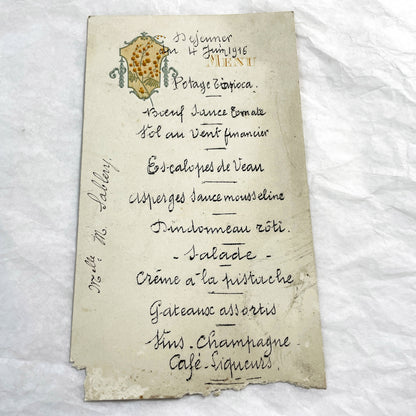 Dejeuner
du 4 Juin 1916
MENU
Potage Tapioca.
Bœuf Sauce Tomate
Vol au Vent financier
Escalopes de Veau
Asperges Sauce mousseline
Dindonneau rôti.
- Salade -
Crème à la pistache
Gâteaux assortis
Vins - Champagne
Café - Liqueurs.
Melle M. Sablery